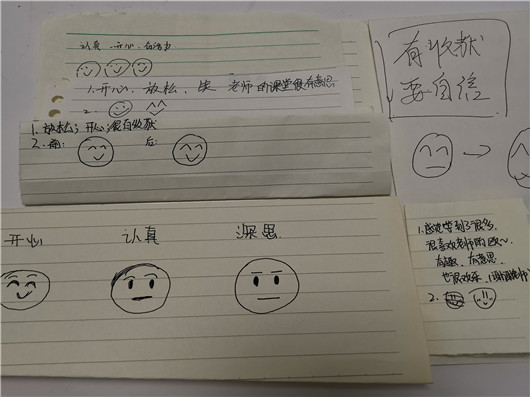 认真、开心、有活力
1.开心、放松、笑 老师的课堂很有意思
2.
1.放松；开心；很有收获
2.前： 后：
有收获
要自信
开心
认真
深思
1.感觉学到了很多,
很喜欢老师的课～
有趣、有意思.
也很欢乐、谢谢老师
2.